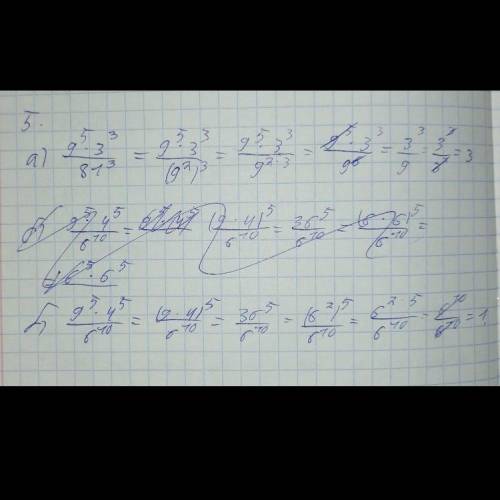 5.
а) 9^5 · 3^3 / 81^3 = 9^5 · 3^3 / (9^2)^3 = 9^5 · 3^3 / 9^(2·3) = 9^5 · 3^3 / 9^6 = 3^3 / 9 = 3^3 / 3^2 = 3
б) 9^5 · 4^5 / 6^10 = (9 · 4)^5 / 6^10 = 36^5 / 6^10 = (6 · 6)^5 / 6^10 =
6^5 · 6^5
б) 9^5 · 4^5 / 6^10 = (9 · 4)^5 / 6^10 = 36^5 / 6^10 = (6^2)^5 / 6^10 = 6^(2·5) / 6^10 = 6^10 / 6^10 = 1.